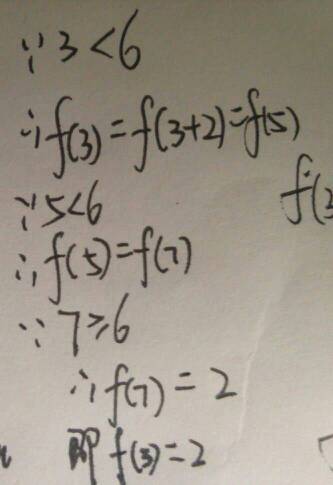 ∵3<6
∴f(3)=f(3+2)=f(5)
∵5<6
∴f(5)=f(7)
∵7≥6
∴f(7)=2
即f(3)=2